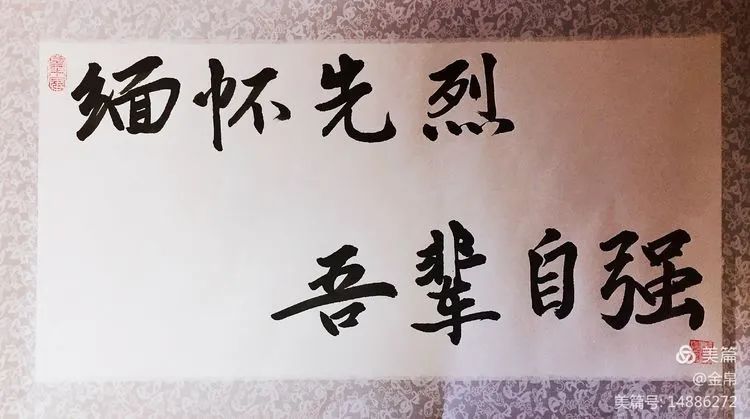 缅怀先烈
吾辈自强
美篇
@金帛
美篇号: 14886272